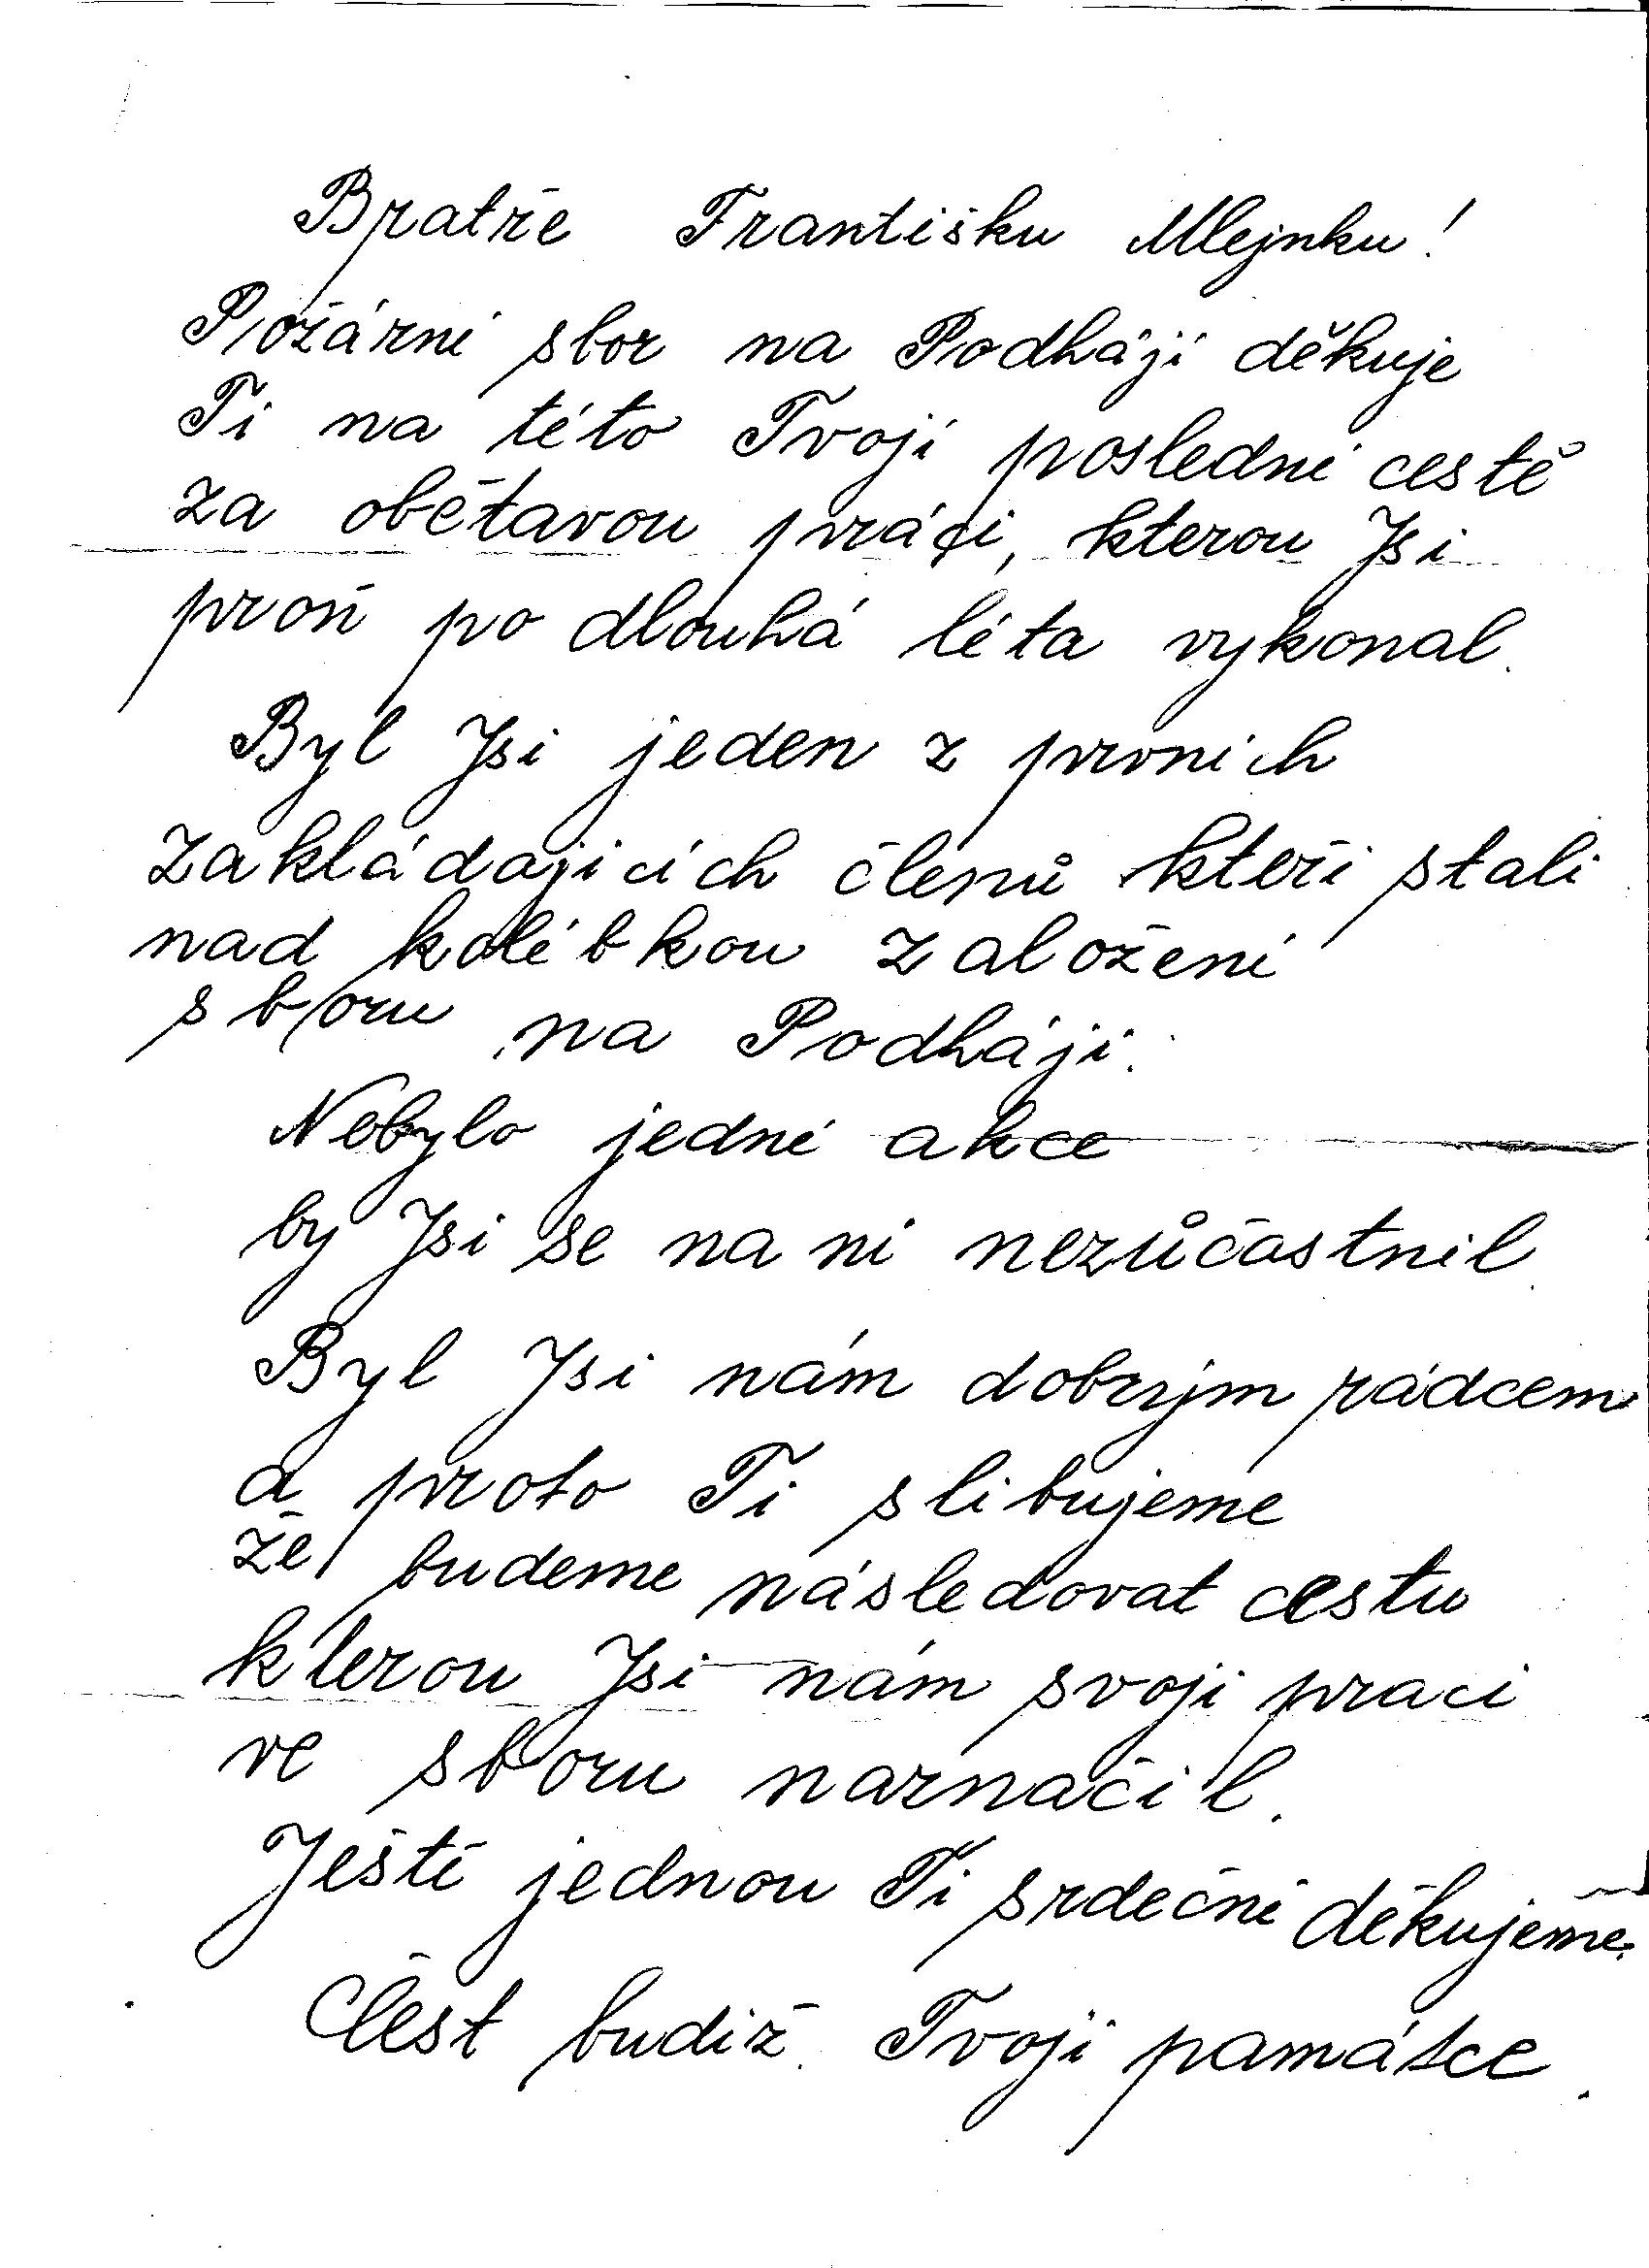 Bratře Františku Mlejnku!
Požární sbor na Podhájí děkuje
Ti na této Tvojí poslední cestě
za obětavou práci, kterou Jsi
proň po dlouhá léta vykonal.
Byl Jsi jeden z prvních
zakládajících členů kteří stáli
nad kolébkou založení
sboru na Podhájí.
Nebylo jedné akce
by Jsi se na ní nezůčastnil.
Byl Jsi nám dobrým rádcem
a proto Ti slibujeme
že budeme následovat cestu
kterou Jsi nám svojí prací
ve sboru naznačil.
Ještě jednou Ti srdečně děkujeme.
Čest budiž Tvojí památce.